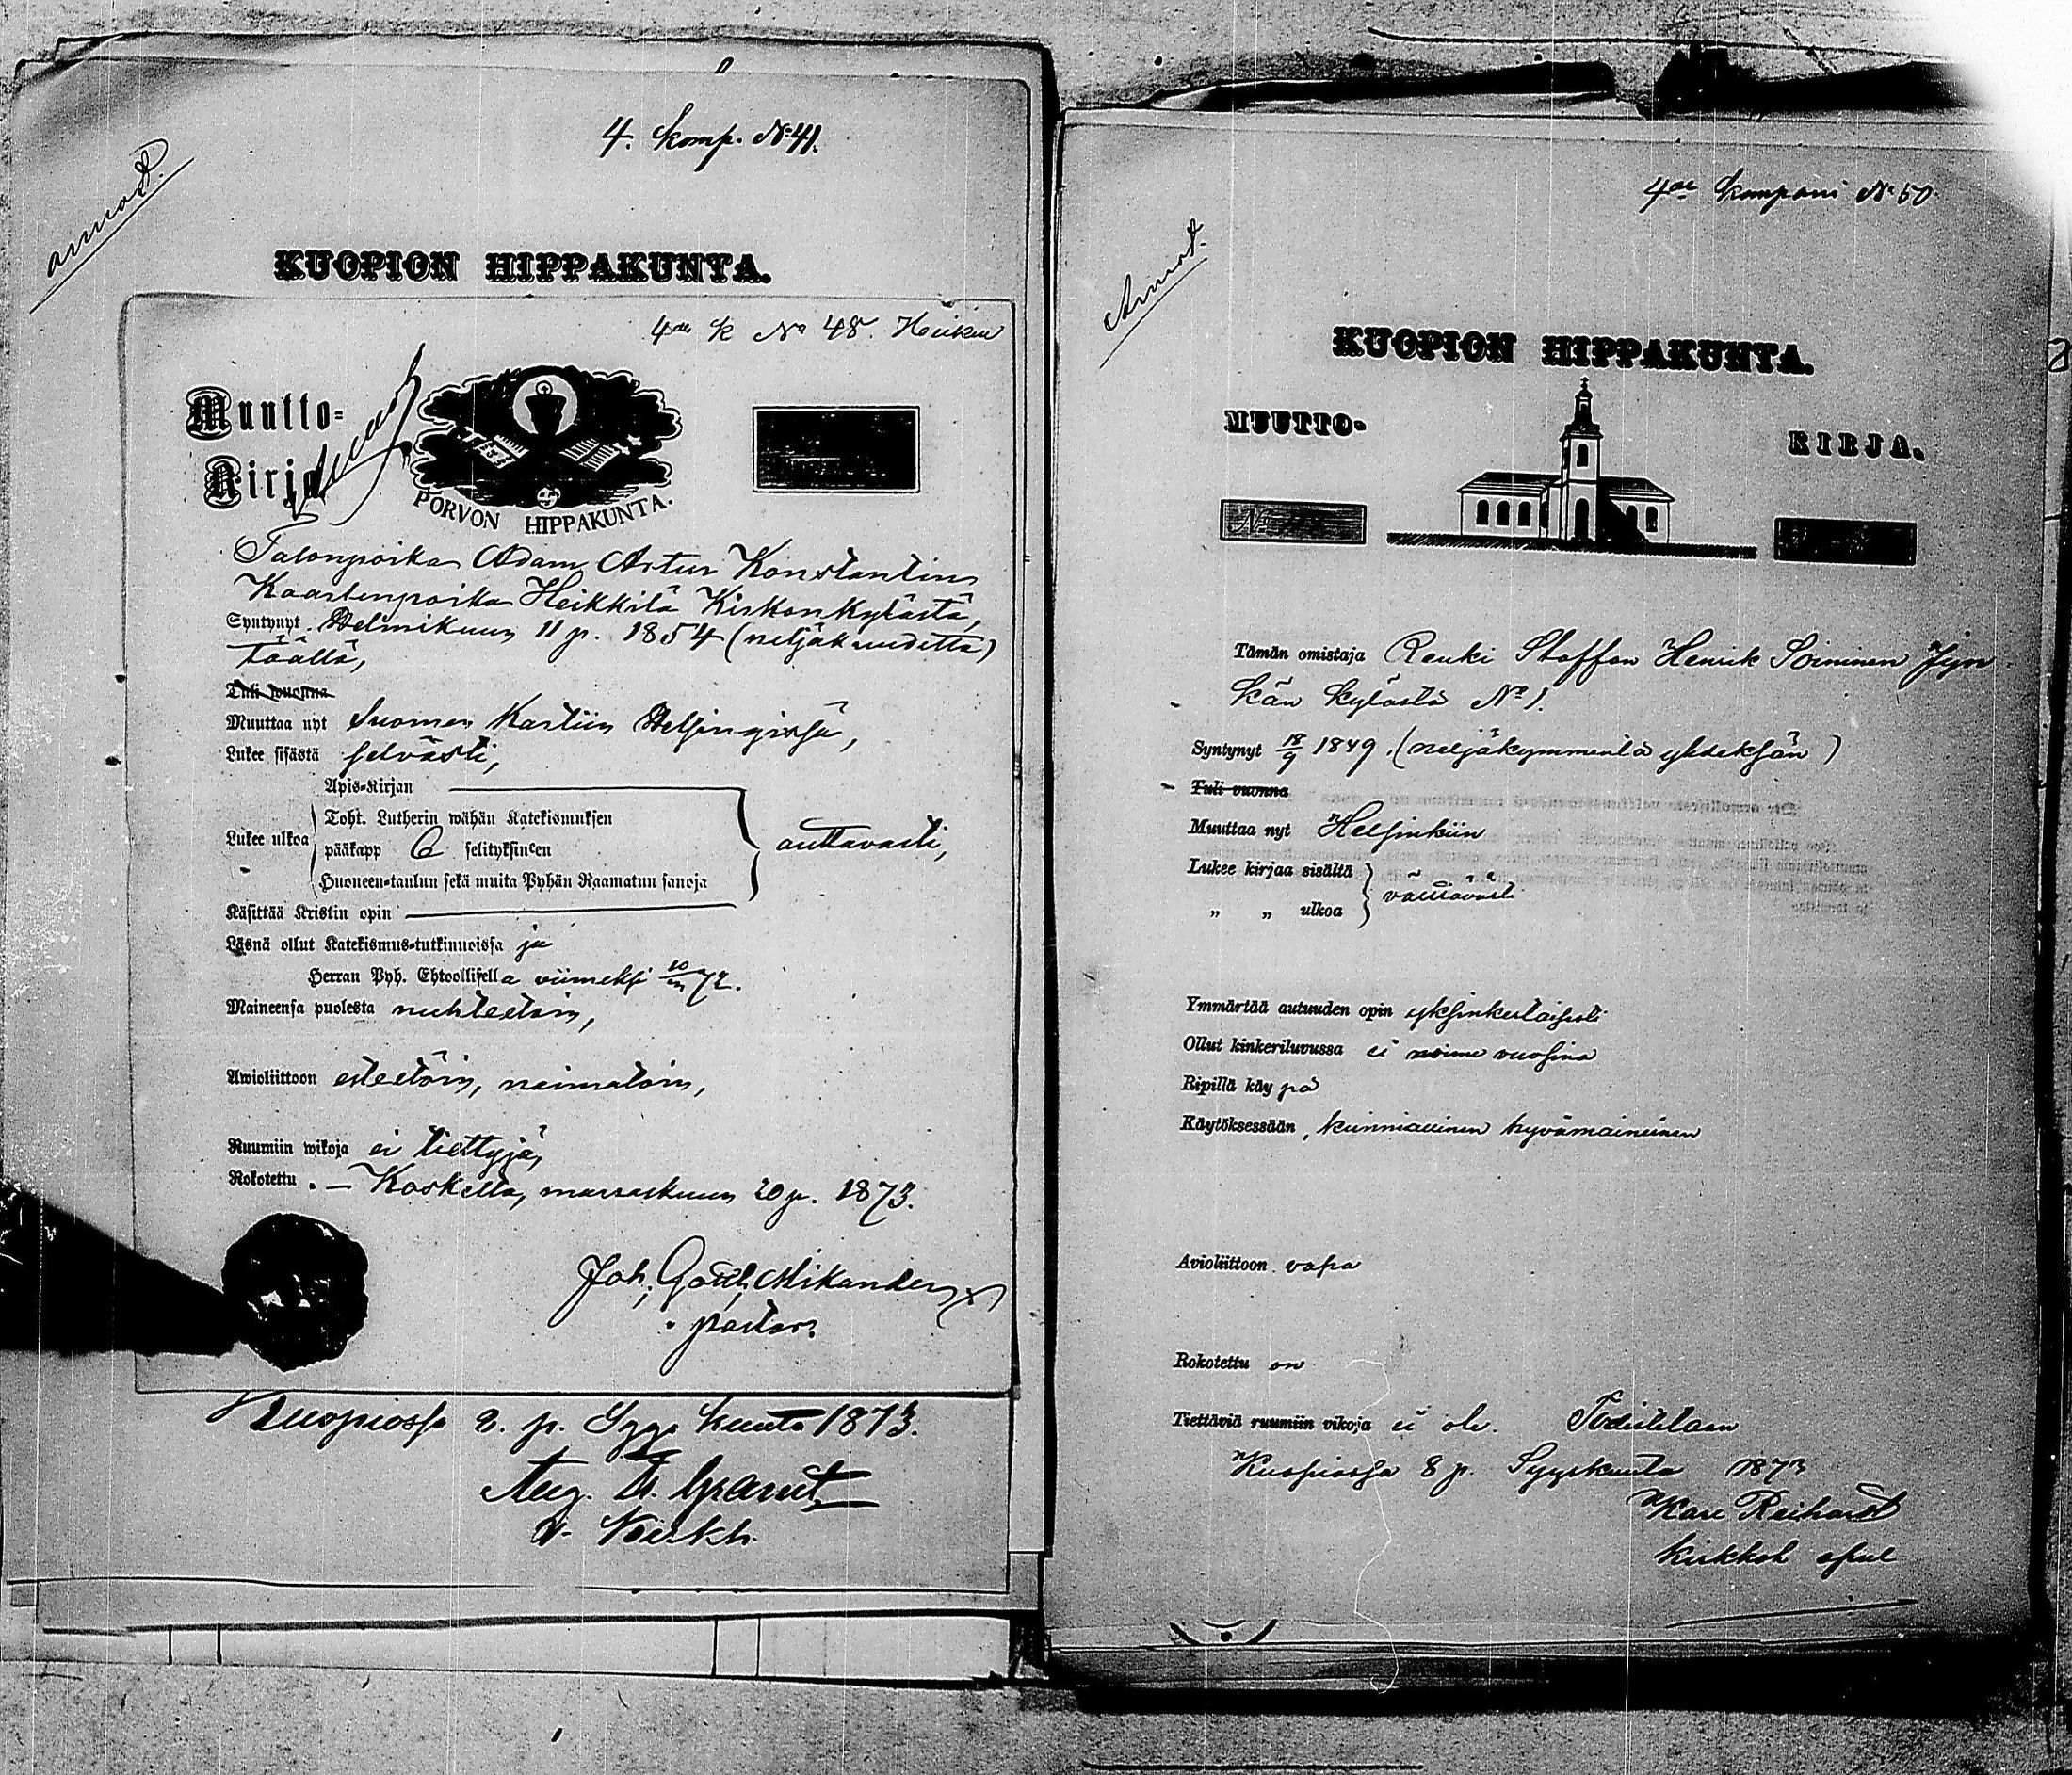 4. Komp. No 41.
annot.
KUOPION HIPPAKUNTA.
4de K No 48. Heiken
Muutto-
Kirja
PORVON HIPPAKUNTA.
Talonpoika Adam Artur Konstantin
Kaarlenpoika Heikkilä Kirkonkylästä,
Syntynyt Helmikuun 11 p. 1854 (neljäkuudetta)
täällä,
Tuli wuonna
Muuttaa nyt Suomen Kaartiin Helsingissä,
Lukee sisästä selvästi,
Apis-Kirjan
Toht. Lutherin wähän Katekismuksen
Lukee ulkoa pääkapp 6 selityksineen auttavasti,
Huoneen-taulun sekä muita Pyhän Raamatun sanoja
Käsittää Kristin opin
Läsnä ollut Katekismus-tutkinnoissa ja
Herran Pyh. Ehtoollisella viimeksi 72.
Maineensa puolesta nuhteetoin,
Awioliittoon esteetöin, naimatoin,
Ruumiin wikoja ei tiettyjä,
Rokotettu . — Koskella, marraskuun 20 p. 1873.
Joh. Gottl. Mikander
pastor.
Kuopiossa 8. p. Syys kuuta 1873.
Aug. Granit
v. Kirkh.
4de Kompani No 50.
Annot.
KUOPION HIPPAKUNTA.
MUUTTO-
KIRJA.
No
Tämän omistaja Renki Staffan Henrik Soininen Jyn
kän kylästä No 1.
Syntynyt 18/9 1849. (neljäkymmentä yhdeksän)
Tuli vuonna
Muuttaa nyt Helsinkiin
Lukee kirjaa sisältä
välttävästi
„ „ ulkoa
Ymmärtää autuuden opin yksinkertaisesti
Ollut kinkeriluvussa ei viime vuosina
Ripillä käypä
Käytöksessään, kunniallinen hyvämaineinen
Avioliittoon vapa
Rokotettu on
Tiettäviä ruumiin vikoja ei ole. Todistetaan
Kuopiossa 8 p. Syyskuuta 1873
Kari Reihard
kirkkoh apul